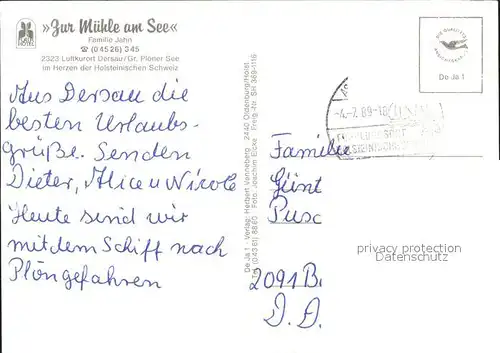 »Zur Mühle am See«
Familie Jahn
☎ (0 45 26) 3 45
2323 Luftkurort Dersau/Gr. Plöner See
im Herzen der Holsteinischen Schweiz
Aus Dersau die
besten Urlaubs-
grüße. Senden
Dieter, Alice u Nicole
Heute sind wir
mit dem Schiff nach
Plön gefahren
De Ja 1 - Verlag: Herbert Venneberg 2440 Oldenburg/Holst.
Tel. (0 43 61) 88 80 Foto: Joachim Elcke Freig.-Nr. SH 389-1116
De Ja 1
-4.-7. 89-18
Familie
Günt
Pusc
2091 B.
D. D.
privacy protection
Datenschutz